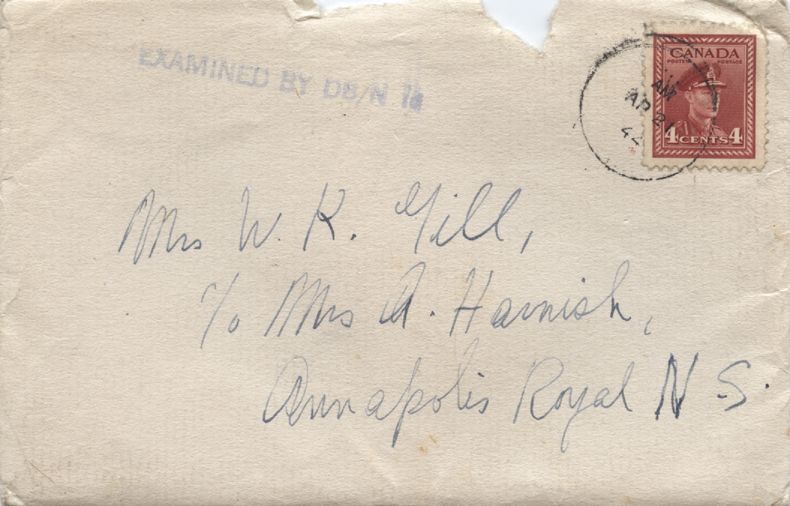 EXAMINED BY DB/N
CANADA
POSTES POSTAGE
AM
AP 21
4 CENTS 4
Mrs W. K. Gill,
c/o Mrs A. Harnish,
Annapolis Royal N.S.